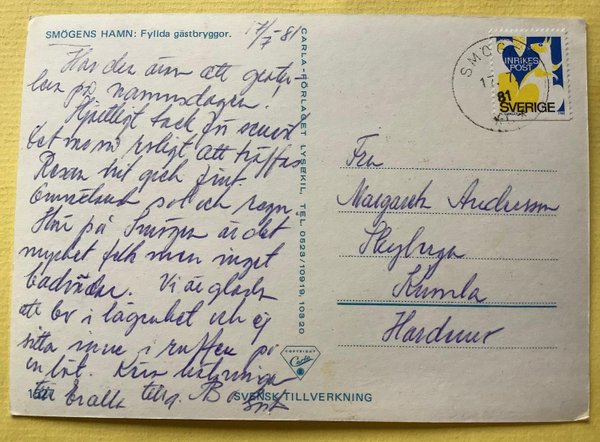 SMÖGENS HAMN: Fyllda gästbryggor.
17/7 81
Har den äran att gratu-
lera på namnsdagen!
Hjärtligt tack för senast
Det var så roligt att träffas
Resan hit gick fint.
Omväxlande sol och regn.
Här på Smögen är det
mycket folk men inget
badväder. Vi är glada
att bo i lägenhet och ej
sitta inne i ruffen på
en båt. Kära hälsningar
till Er alla
CARLA-FÖRLAGET LYSEKIL, TEL. 0523/10919, 10320
COPYRIGHT
Carla
SVENSK TILLVERKNING
SMÖGEN
17. 7
81
INRIKES
POST
SVERIGE
Fru
Margareta Andersson
Kumla